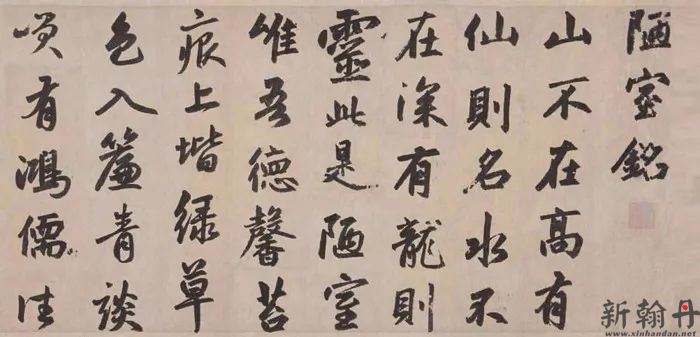 陋室銘
山不在高有
仙則名水不
在深有龍則
靈此是陋室
唯吾德馨苔
痕上堦緑草
色入簾青談
咲有鴻儒往
新翰丹
www.xinhandan.net